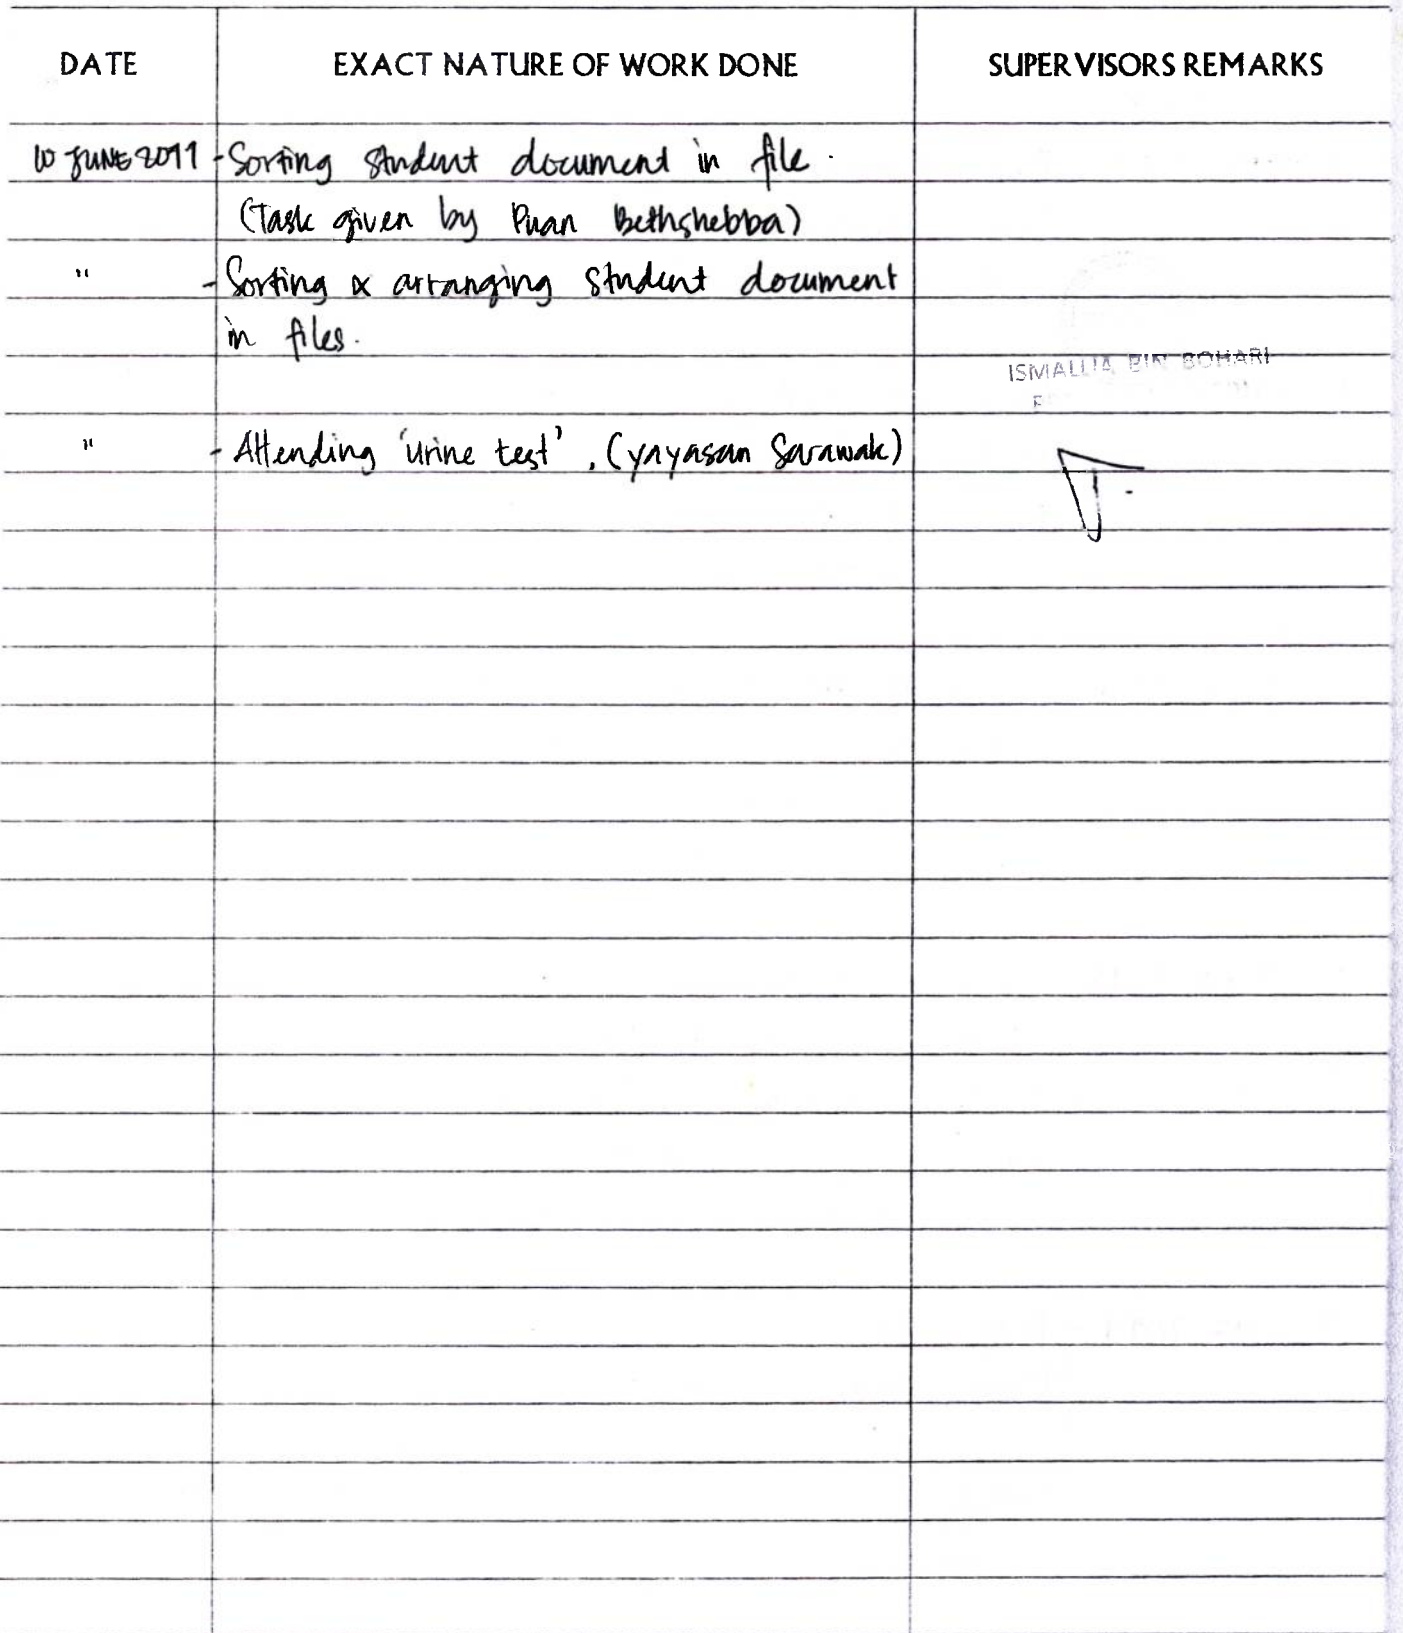 DATE EXACT NATURE OF WORK DONE SUPERVISORS REMARKS
10 JUNE 2011 - Sorting student document in file.
(Task given by Puan Bethshebba)
" - Sorting & arranging student document
in files.
ISMALLIA BIN BOHARI
" - Attending 'urine test'. (yayasan Sarawak)